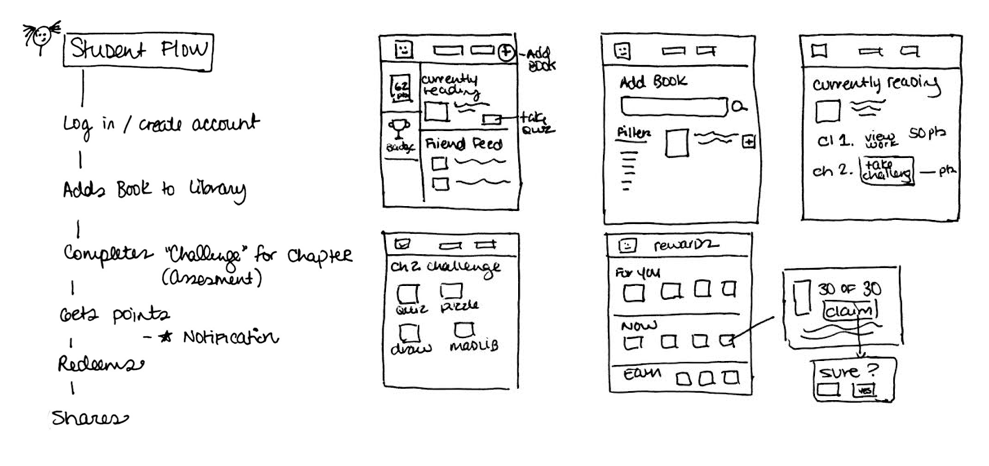 Student Flow
Log in / create account
Adds Book to Library
Completes "Challenge" for Chapter
(Assesment)
Gets points
- ★ Notification
Redeems
Shares
Add
Book
62
pts
currently
reading
take
Quiz
Badge
Friend Feed
Add Book
Filter
currently reading
Ch 1. view
work 50 pts
Ch 2. take
challeng — pts
Ch 2 challenge
Quiz puzzle
draw madlib
rewards
For you
Now
Earn
30 OF 30
claim
sure?
yes